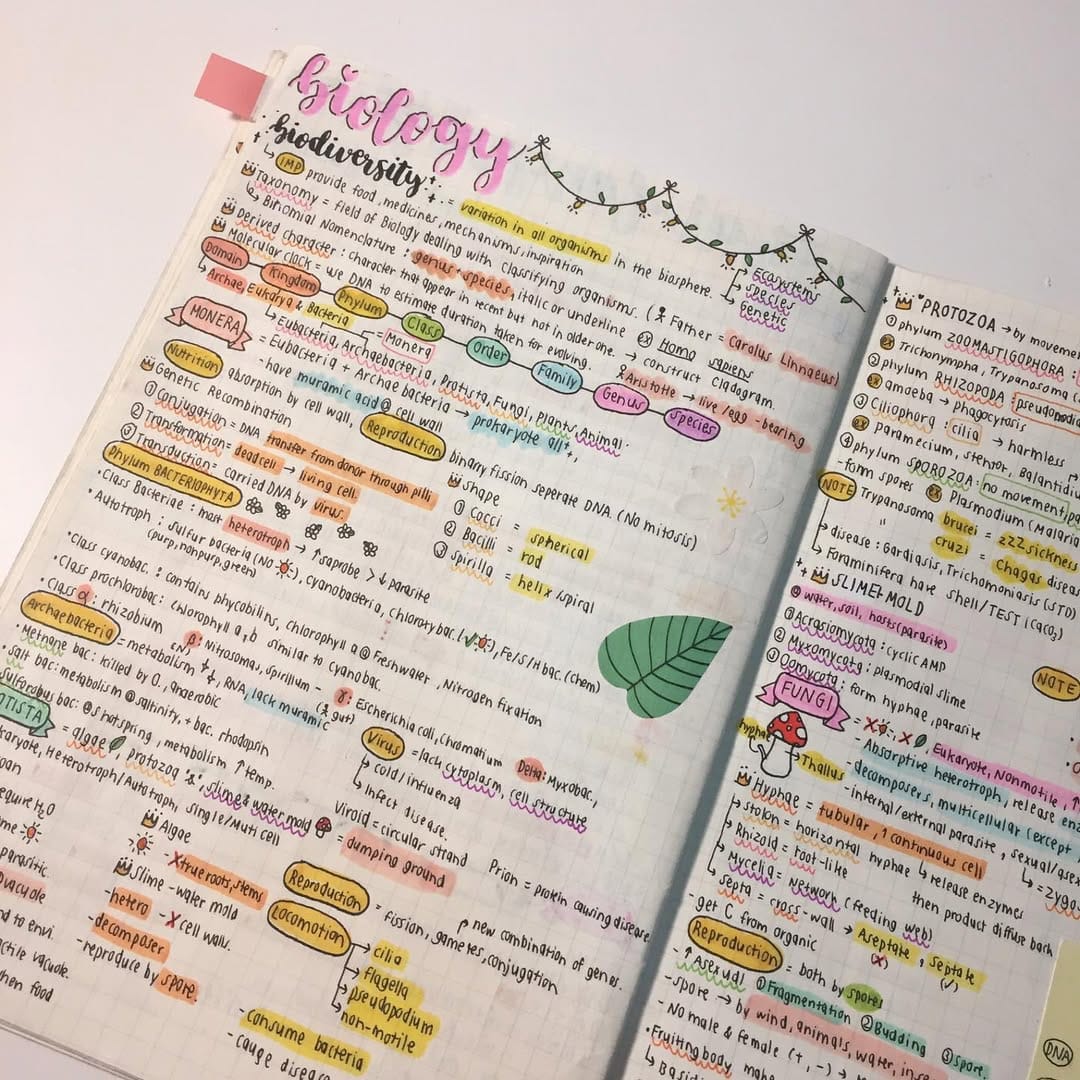 biology
biodiversity = variation in all organisms in the biosphere.
Ecosystems
species
Genetic
↳ IMP provide food, medicines, mechanisms, inspiration
Taxonomy = field of Biology dealing with classifying organisms. ( Father = Carolus Linnaeus)
↳ Binomial Nomenclature : genus + species, italic or underline ex Homo sapiens
Derived character : character that appear in recent but not in older one. → construct cladogram
Molecular clock = use DNA to estimate duration taken for evolving. Aristotle → live/egg-bearing
Domain Kingdom Phylum Class Order Family Genus Species
↳ Archae, Eukarya & bacteria Monera
↳ Eubacteria, Archaebacteria, Protista, Fungi, Plants, Animal.
MONERA = Eubacteria + Archae bacteria → prokaryote all
- have muramic acid @ cell wall
Nutrition absorption by cell wall, Reproduction binary fission seperate DNA (No mitosis)
Genetic Recombination
① Conjugation = DNA transfer from donor through pilli
② Transformation = dead cell → living cell.
③ Transduction = carried DNA by virus.
Shape
① Cocci = spherical
② Bacilli = rod
③ Spirilla = helix spiral
Phylum BACTERIOPHYTA
• Class Bacteriae : most heterotroph → ↑ saprobe > ↓ parasite
• Autotroph ; sulfur bacteria (No ), cyanobacteria, chloroxybac. (✓), Fe/S/H bac. (chem)
(purp, nonpurp, green)
• Class cyanobac. : contains phycobilins, chlorophyll a @ Freshwater, Nitrogen fixation
• Class prochlorobac : chlorophyll a,b similar to cyanobac.
• Class α : rhizobium β : Nitrosomas, spirillum - γ : Escherichia coli, chromatium Delta : Myxobac,
(gut)
Archaebacteria = metabolism , RNA, lack muramic
• Methane bac : killed by O₂, anaerobic
• Salt bac : metabolism @ salinity, + bac. rhodopsin
sulfolobus bac : @ s hotspring, metabolism ↑ temp.
Virus = lack cytoplasm, cell structure
↳ cold/infiuenza
↳ Infect disease.
= algae protozoa & slime & water mold = dumping ground
Viroid = circular strand Prion = protein causing disease
Heterotroph/Autotroph, single/Muti cell
Reproduction = fission, gametes, conjugation
new combination of genes.
Locomotion
cilia
flagella
pseudopodium
non-motile
- consume bacteria
Algae
- x true roots, stems
Slime - water mold
- hetero - x cell wall.
- decomposer
- reproduce by spore.
equire H₂O
parasitic.
vacuole
nd to envi.
actile vacuole.
hen food
PROTOZOA → by moveme
① phylum ZOOMASTIGOPHORA :
ex Trichonympha, Trypanosoma
② phylum RHIZOPODA pseudopodia
ex amoeba → phagocytosis
③ Ciliophora : cilia → harmless
ex paramecium, stentor, Balantidiu
④ phylum SPOROZOA : no movement, pa
- form spores ex Plasmodium (Malaria
NOTE Trypanosoma brucei = zzz sickness
" cruzi = Chagas diseas
↳ disease : Gardiasis, Trichomoniasis (STD)
↳ Foraminifera have shell/TEST (CaCO₃)
SLIME + MOLD
@ water, soil, hosts (parasite)
① Acrasiomycota : cyclic AMP
② Myxomycota : plasmodial slime
③ Oomycota : form hyphae, parasite
NOTE
FUNGI = x , x , Eukaryote, Nonmotile,
- Absorptive heterotroph, release enz
- decomposers, multicellular (except
- internal/external parasite, sexual/asex
hyphae
Thallus
↳ = zygo
Hyphae = tubular, 1 continuous cell
↳ release enzymes
then product diffuse back
Stolon = horizontal hyphae
Rhizoid = root-like
Mycelia = network (feeding web)
Septa = cross-wall → Aseptate, septate
(x) (✓)
- get C from organic
Reproduction = both by spores
- ↑ Asexual ① Fragmentation ② Budding ③ Spore.
- Spore → by wind, animals, water, inse
- No male & female (+, -) →
• Fruiting body
DNA